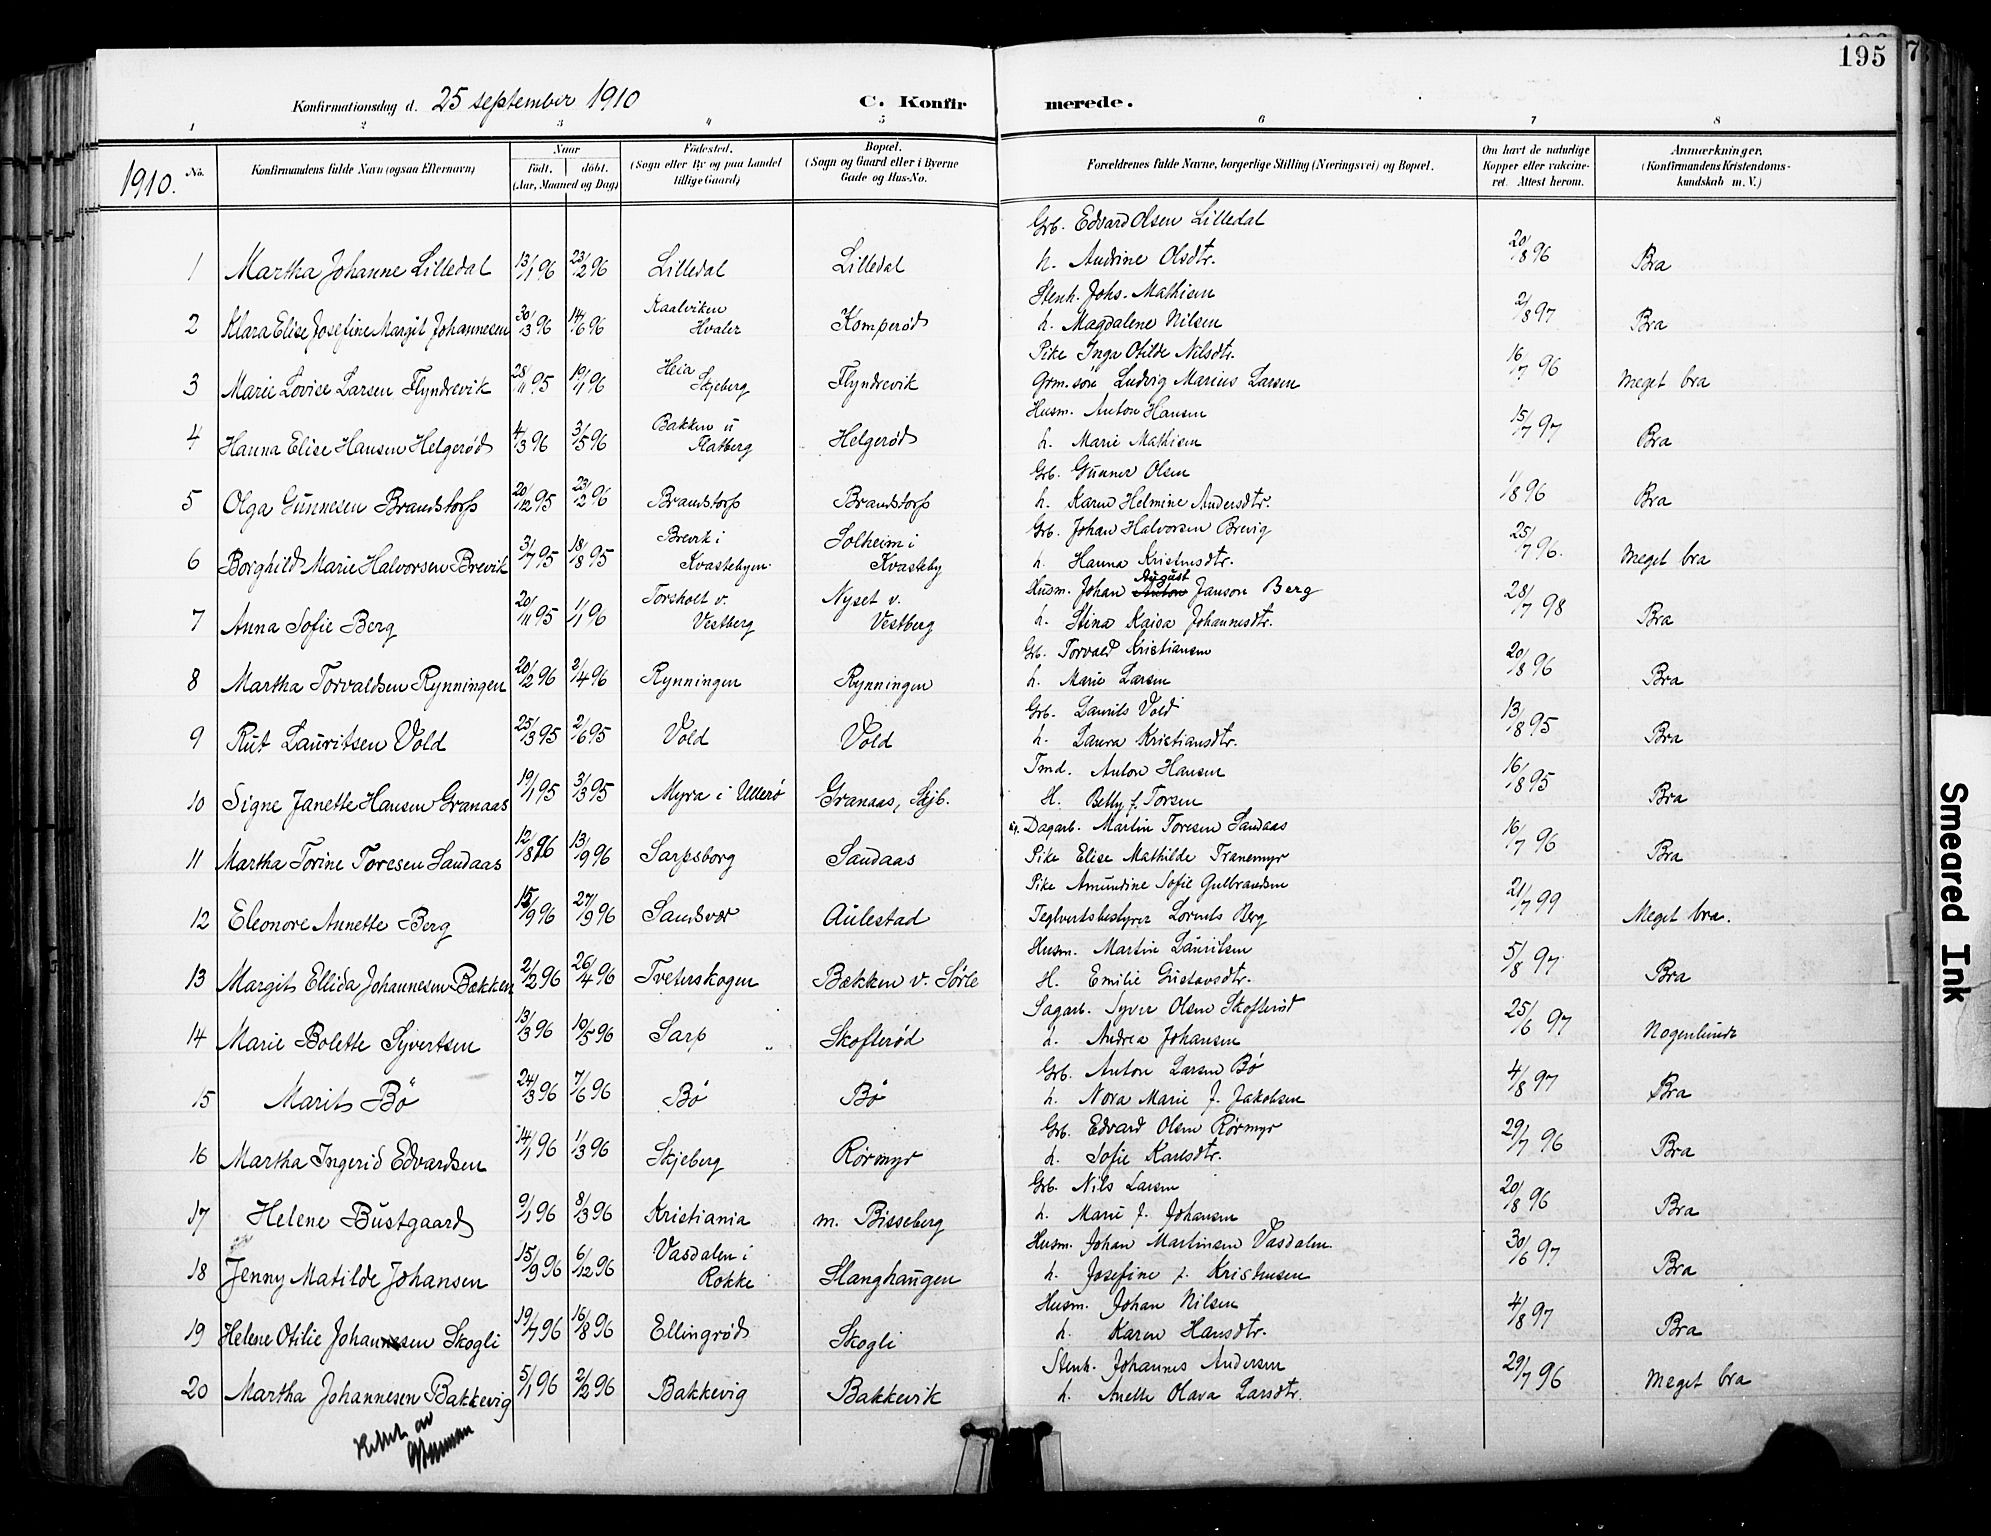 195
Konfirmationsdag d. 25 september 1910
C. Konfirmerede.
1 2 3 4 5 6 7 8
1910.
No.
Konfirmandens fulde Navn (ogsaa Efternavn)
Naar
Født. døbt.
(Aar, Maaned og Dag)
Fødested.
(Sogn eller By og paa Landet tillige Gaard)
Bopæl.
(Sogn og Gaard eller i Byerne Gade og Hus-No.
Forældrenes fulde Navne, borgerlige Stilling (Næringsvei) og Bopæl.
Om havt de naturlige Kopper eller vakcineret. Attest herom.
Anmærkninger.
(Konfirmandens Kristendomskundskab m. V.)
Grb. Edvard Olsen Lilledal
1 Martha Johanne Lilledal 13/1 96 23/2 96 Lilledal Lilledal h. Andrine Olsdtr. 20/8 96 Bra
Kaalviken Stenh. Johs. Mathisen
2 Klara Elise Josefine Margit Johannesen 30/3 96 14/6 96 Hvaler Komperød h. Magdalene Nilsen 2/8 97 Bra
Heia Pike Inga Otilde Nilsdtr.
3 Marie Lovise Larsen Flyndrevik 28/11 95 19/1 96 Skjeberg Flyndrevik Grm. søn Ludvig Marius Larsen 16/7 96 Meget bra
Bakken u Husm. Anton Hansen
4 Hanna Elise Hansen Helgerød 4/3 96 3/5 96 Flatberg Helgerød h. Marie Mathisen 15/7 97 Bra
Grb. Gunner Olsen
5 Olga Gunnesen Brandstorp 20/12 95 23/2 96 Brandstorp Brandstorp h. Karen Helmine Andersdtr. 1/8 96 Bra
Brevik i Solheim i Grb. Johan Halvorsen Brevig
6 Borghild Marie Halvorsen Brevik 3/7 95 18/8 95 Kvastebyen Kvasteby h. Hanna Kristensdtr. 25/7 96. Meget bra
Torsholt v. Nyset v. Husm. Johan Anton August Janson Berg
7 Anna Sofie Berg 20/11 95 1/1 96 Vestberg Vestberg h. Stina Kaisa Johannesdtr. 28/7 98 Bra
Grb. Torvald Kristiansen
8 Martha Torvaldsen Rynningen 20/2 96 2/4 96 Rynningen Rynningen h. Marie Larsen 20/8 96 Bra
Grb. Laurits Vold
9 Rut Lauritsen Vold 25/3 95 2/6 95 Vold Vold h. Laura Kristiansdtr. 13/8 95 Bra
Tmd. Anton Hansen
10 Signe Janette Hansen Granaas 19/1 95 3/3 95 Myra i Ullerø Granaas, Skjb. H. Betty f. Torsen 16/8 95 Bra
Dagarb. Martin Toresen Sandaas
11 Martha Torine Toresen Sandaas 12/8 96 13/9 96 Sarpsborg Sandaas Pike Elise Mathilde Tranemyr 16/7 96 Bra
Pike Amundine Sofie Gulbrandsen
12 Eleonore Annette Berg 15/9 96 27/9 96 Sandsvær Aulestad Teglverksbestyrer Lorents Berg 21/7 99 Meget bra.
Husm. Martin Lauritsen
13 Margit Ellida Johannesen Bækken 2/2 96 26/4 96 Tveterskogen Bækken v. Sørle H. Emilie Gustavsdtr. 5/8 97 Bra
Sagarb. Syver Olsen Skofterød
14 Marie Bolette Syvertsen 13/3 96 10/5 96 Sarp Skofterød h. Andrea Johansen 25/6 97 Nogenlunde
Grb. Anton Larsen Bø
15 Marit Bø 24/3 96 7/6 96 Bø Bø h. Nora Marie f. Jakobsen 4/8 97 Bra
Grb. Edvard Olsen Rørmyr
16 Martha Ingerid Edvardsen 14/1 96 1/3 96 Skjeberg Rørmyr h. Sofie Karlsdtr. 29/7 96 Bra
Grb. Nils Larsen
17 Helene Bustgaard 9/1 96 8/3 96 Kristiania m. Bisseberg h. Marie f. Johansen 20/8 96 Bra
Vasdalen i Husm. Johan Martinsen Vasdalen
18 Jenny Matilde Johansen 15/9 96 6/12 96 Rokke Slanghaugen h. Josefine f. Kristensen 30/6 97 Bra
Husm. Johan Nilsen
19 Helene Otilie Johannesen Skogli 19/7 96 16/8 96 Ellingrød Skogli h. Karen Hansdtr. 4/8 97 Bra
Stenh. Johannes Andersen
20 Martha Johannesen Bakkevig 5/1 96 2/2 96 Bakkevig Bakkevik h. Anette Olava Larsdtr. 29/7 96 Meget bra
Smeared Ink